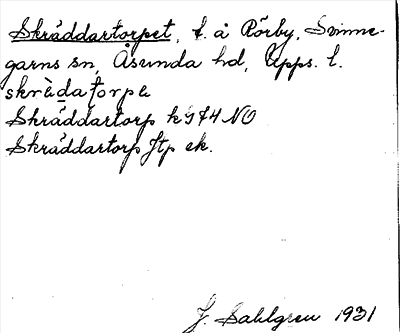 Skräddartorpet, t. å Rörby, Svinne-
garns sn, Åsunda hd, Upps. l.
skrädatorpe
Skräddartorp k 974 NO
Skräddartorp Jtp ek.
J. Sahlgren 1931